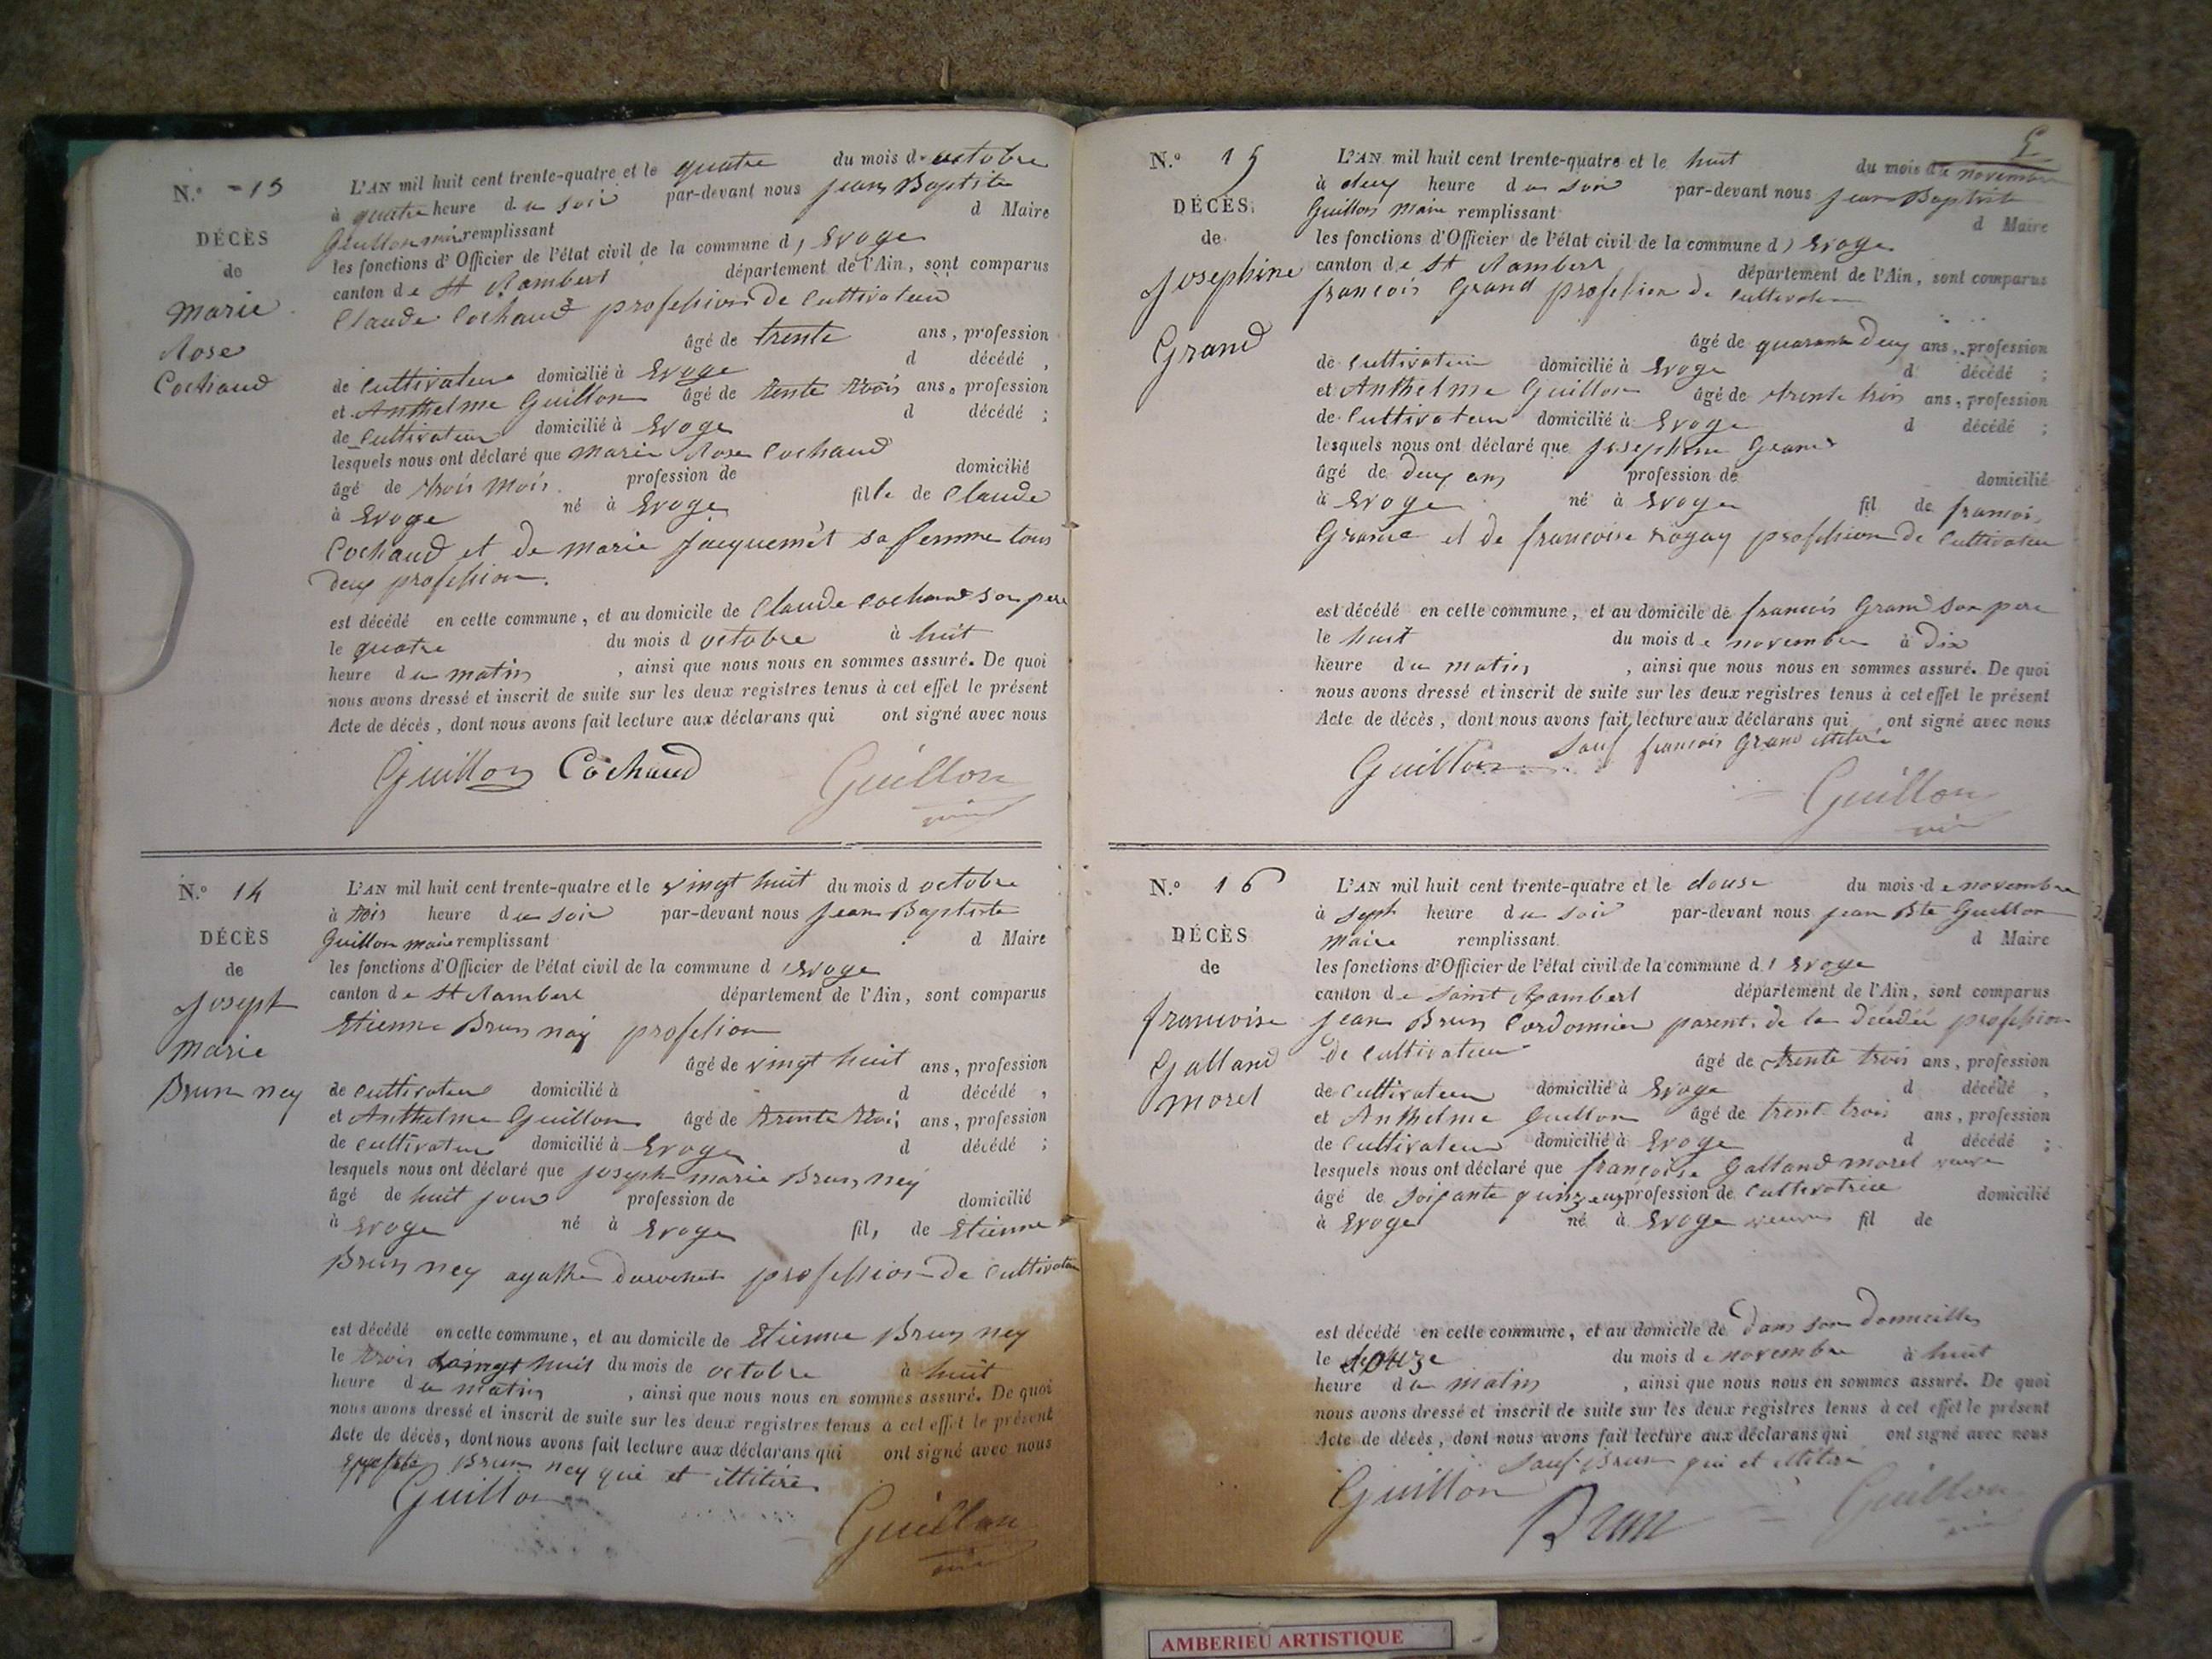 N.° - 13
DÉCÈS
de
Marie
Rose
Cochaud
L'AN mil huit cent trente-quatre et le quatre du mois d octobre
à quatre heure du soir par-devant nous jean Baptiste
Guillon maire remplissant d Maire
les fonctions d'Officier de l'état civil de la commune d, Evoge
canton de St Rambert département de l'Ain, sont comparus
Claude Cochaud profession de Cultivateur
âgé de trente ans, profession
de Cultivateur domicilié à Evoge d décédé ,
et Anthelme Guillon âgé de trente trois ans, profession
de Cultivateur domicilié à Evoge d décédé ;
lesquels nous ont déclaré que Marie Rose Cochaud
âgé de trois mois profession de domicilié
à Evoge né à Evoge fille de Claude
Cochaud et de marie jacquemet sa femme tous
deux profession.
est décédé en cette commune, et au domicile de Claude Cochaud son pere
le quatre du mois d octobre à huit
heure du matin , ainsi que nous nous en sommes assuré. De quoi
nous avons dressé et inscrit de suite sur les deux registres tenus à cet effet le présent
Acte de décès, dont nous avons fait lecture aux déclarans qui ont signé avec nous
Guillon Cochaud Guillon
N.° 14
DÉCÈS
de
Joseph
Marie
Brun ney
L'AN mil huit cent trente-quatre et le vingt huit du mois d octobre
à trois heure du soir par-devant nous jean Baptiste
Guillon maire remplissant d Maire
les fonctions d'Officier de l'état civil de la commune d, Evoge
canton de St Rambert département de l'Ain, sont comparus
Etienne Brun ney profession
âgé de vingt huit ans, profession
de cultivateur domicilié à d décédé ,
et Anthelme Guillon âgé de trente trois ans, profession
de cultivateur domicilié à Evoge d décédé ;
lesquels nous ont déclaré que joseph marie Brun ney
âgé de huit jour profession de domicilié
à Evoge né à Evoge fils de Etienne
Brun ney agathe profession de Cultivateur
est décédé en cette commune, et au domicile de Etienne Brun ney
le trois vingt huit du mois de octobre à huit
heure du matin , ainsi que nous nous en sommes assuré. De quoi
nous avons dressé et inscrit de suite sur les deux registres tenus à cet effet le présent
Acte de décès, dont nous avons fait lecture aux déclarans qui ont signé avec nous
Brun ney qui et illitiré
Guillon Guillon
N.° 15
DÉCÈS
de
Josephine
Grand
L'AN mil huit cent trente-quatre et le huit du mois de novembre
à deux heure du soir par-devant nous jean Baptiste
Guillon Maire remplissant d Maire
les fonctions d'Officier de l'état civil de la commune d, Evoge
canton de St Rambert département de l'Ain, sont comparus
francois Grand profession de Cultivateur
âgé de quarante deux ans, profession
de cultivateur domicilié à Evoge d décédé ;
et Anthelme Guillon âgé de trente trois ans, profession
de Cultivateur domicilié à Evoge d décédé ;
lesquels nous ont déclaré que josephine Grand
âgé de deux ans profession de domicilié
à Evoge né à Evoge fil de francois
Grand et de francoise profession de Cultivateur
est décédé en cette commune, et au domicile de francois Grand son pere
le huit du mois de novembre à dix
heure du matin , ainsi que nous nous en sommes assuré. De quoi
nous avons dressé et inscrit de suite sur les deux registres tenus à cet effet le présent
Acte de décès, dont nous avons fait lecture aux déclarans qui ont signé avec nous
Sauf francois Grand illitiré
Guillon
Guillon
N.° 16
DÉCÈS
de
francoise
Galland
morel
L'AN mil huit cent trente-quatre et le douse du mois de novembre
à sept heure du soir par-devant nous jean Bte Guillon
maire remplissant d Maire
les fonctions d'Officier de l'état civil de la commune d, Evoge
canton de Saint Rambert département de l'Ain, sont comparus
jean Brun Cordonnier parent de la décédée profession
de cultivateur âgé de trente trois ans, profession
de Cultivateur domicilié à Evoge d décédé ,
et Anthelme Guillon âgé de trent trois ans, profession
de Cultivateur domicilié à Evoge d décédé ;
lesquels nous ont déclaré que françoise Galland morel veuve
âgé de soixante quinze ans profession de Cultivatrice domicilié
à Evoge né à Evoge fil de
est décédé en cette commune, et au domicile de dans son domicilles
le douze du mois de novembre à huit
heure du matin , ainsi que nous nous en sommes assuré. De quoi
nous avons dressé et inscrit de suite sur les deux registres tenus à cet effet le présent
Acte de décès, dont nous avons fait lecture aux déclarans qui ont signé avec nous
Sauf Brun qui et illitiré
Guillon Brun Guillon
AMBERIEU ARTISTIQUE